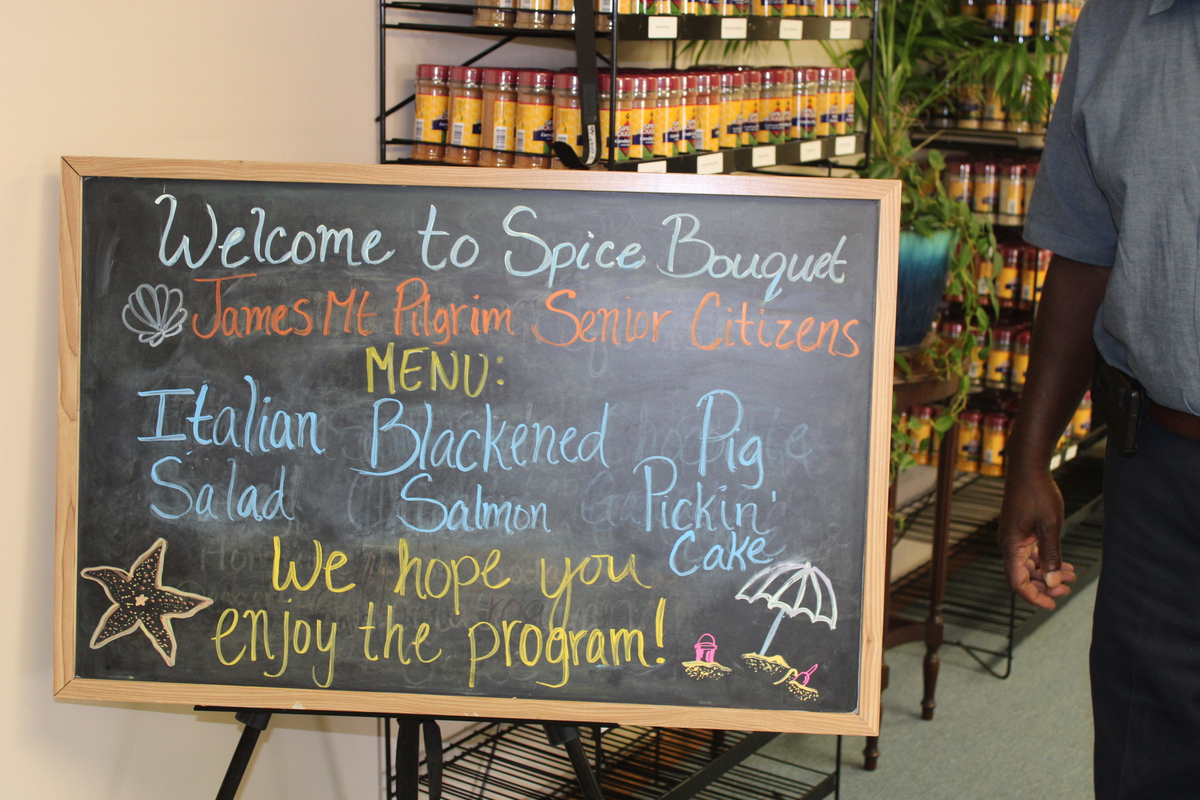 Welcome to Spice Bouquet
James Mt Pilgrim Senior Citizens
MENU:
Italian Salad
Blackened Salmon
Pig Pickin' Cake
We hope you
enjoy the program!